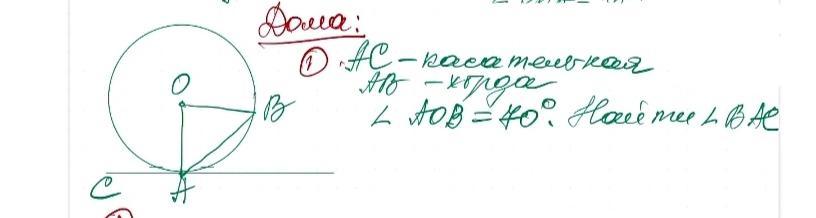 Дома:
① AC – касательная
AB – хорда
∠ AOB = 70°. Найти ∠ BAC
O
B
C
A